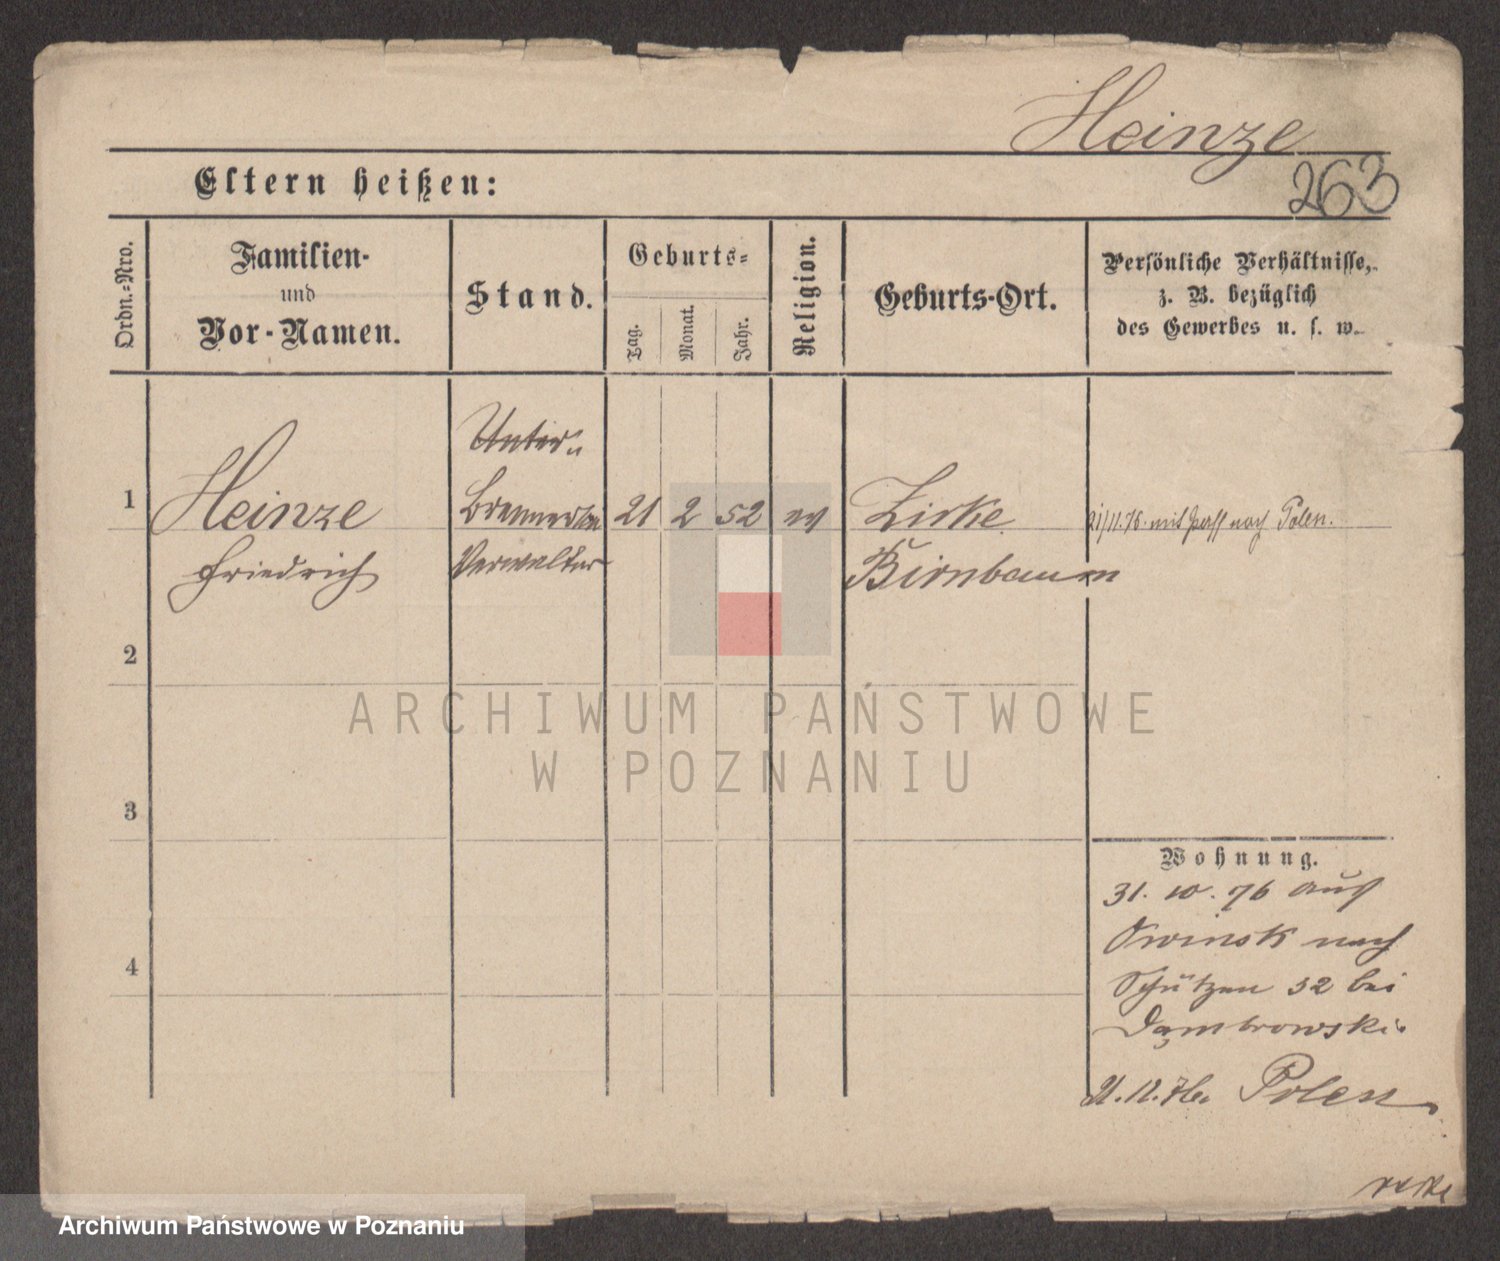 Heinze
263
Eltern heißen:
Ordn.-Nro.
Familien-
und
Vor-Namen.
Stand.
Geburts-
Tag.
Monat.
Jahr.
Religion.
Geburts-Ort.
Persönliche Verhältnisse,
z. B. bezüglich
des Gewerbes u. s. w.
1
Heinze
Friedrich
Unter-
Brennerei
Verwalter
21
2
52
Zirke
Birnbaum
21/11.76. mit nach Polen.
2
3
4
ARCHIWUM PAŃSTWOWE
W POZNANIU
Wohnung.
31. 10. 76 aus
Owinsk nach
Schützen 32 bei
Dąmbrowski.
Polen
Archiwum Państwowe w Poznaniu